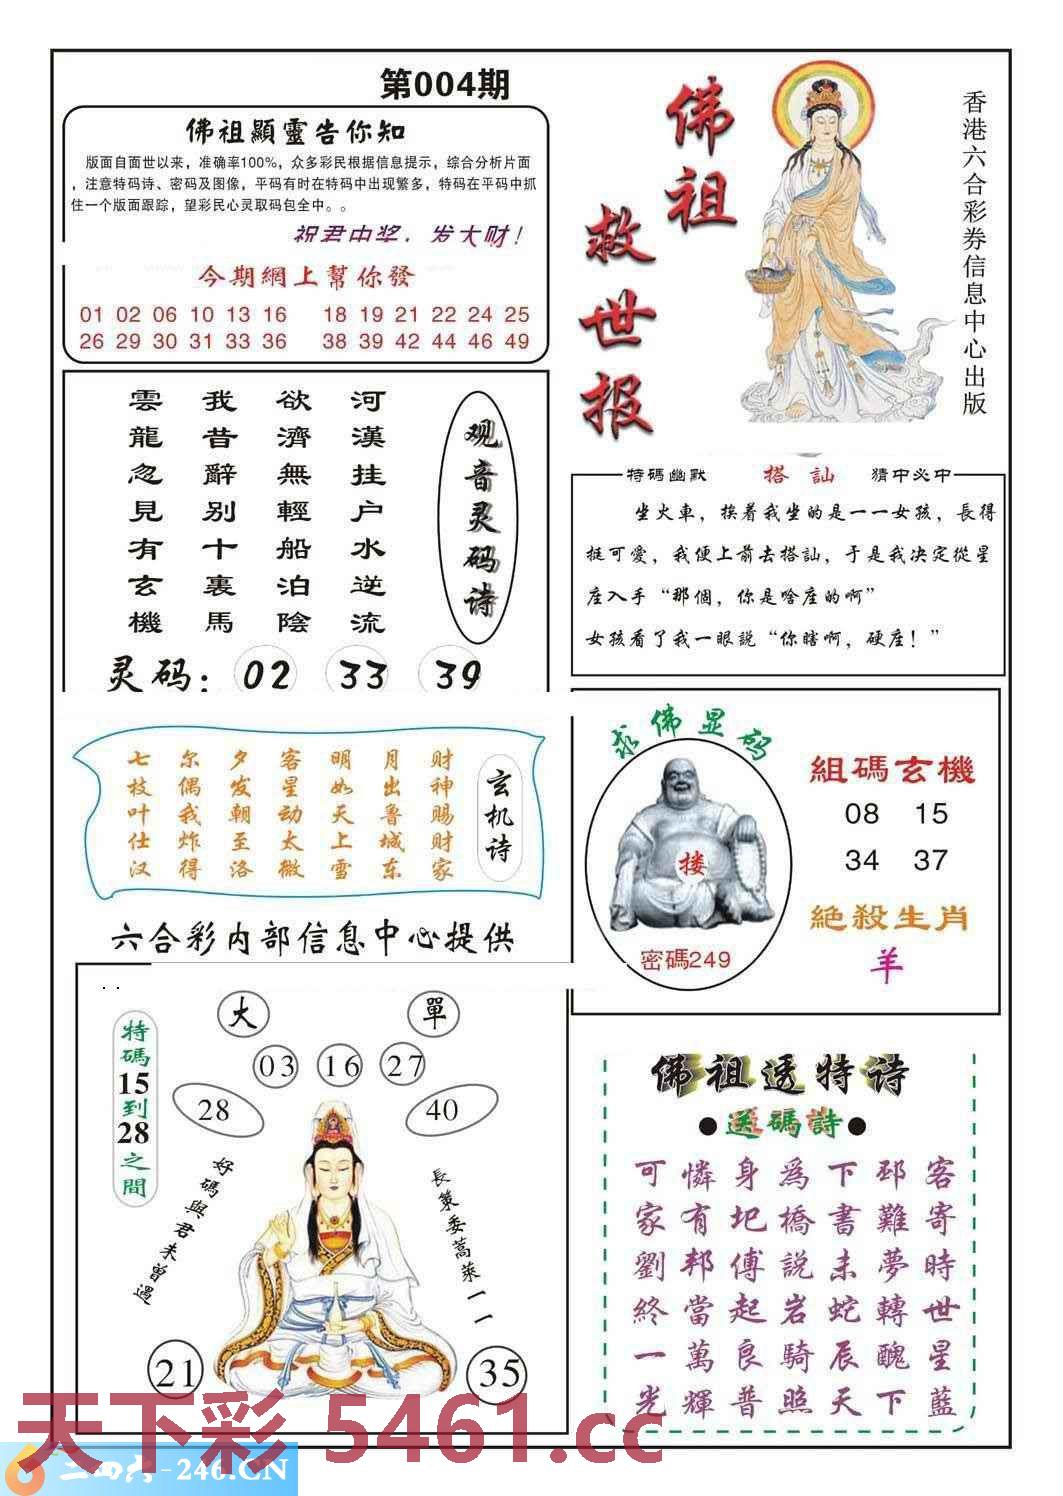 第004期
佛祖顯靈告你知
版面自面世以来，准确率100%，众多彩民根据信息提示，综合分析片面
，注意特码诗、密码及图像，平码有时在特码中出现繁多，特码在平码中抓
住一个版面跟踪，望彩民心灵取码包全中。。
祝君中奖，发大财！
今期網上幫你發
01 02 06 10 13 16 18 19 21 22 24 25
26 29 30 31 33 36 38 39 42 44 46 49
佛祖
救世报
香港六合彩券信息中心出版
观音灵码诗
河漢挂户水逆流
欲濟無輕船泊陰
我昔辭别十裏馬
雲龍忽見有玄機
灵码：02 33 39
特碼幽默 搭訕 猜中必中
坐火車，挨着我坐的是一一女孩，長得
挺可愛，我便上前去搭訕，于是我决定從星
座入手“那個，你是啥座的啊”
女孩看了我一眼説“你瞎啊，硬座！”
玄机诗
财神赐财家
月出鲁城东
明如天上雪
客星动太微
夕发朝至洛
尔偶我炸得
七枝叶仕汉
求佛显码
搂
密碼249
組碼玄機
08 15
34 37
絶殺生肖
羊
六合彩内部信息中心提供
特碼15到28之間
大 單
03 16 27
28 40
好碼與君未曾遇
長策委蒿萊一一
21 35
佛祖透特诗
●送碼詩●
可憐身爲下邳客
家有圯橋書難寄
劉邦傅説未夢時
終當起岩蛇轉世
一萬良騎辰醜星
光輝普照天下藍
天下彩 5461.cc
二四六-246.CN